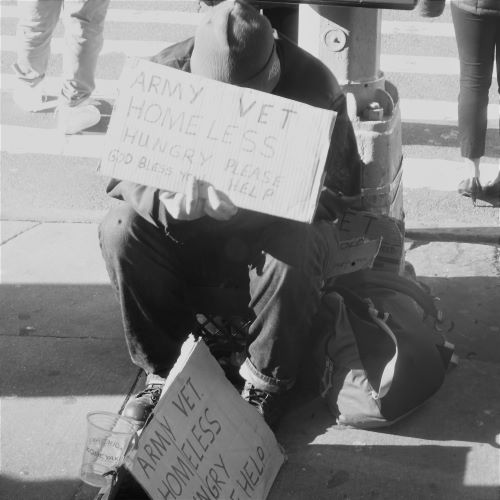 ARMY VET
HOMELESS
HUNGRY PLEASE
GOD BLESS YOU HELP
ARMY VET
HOMELESS
HELP